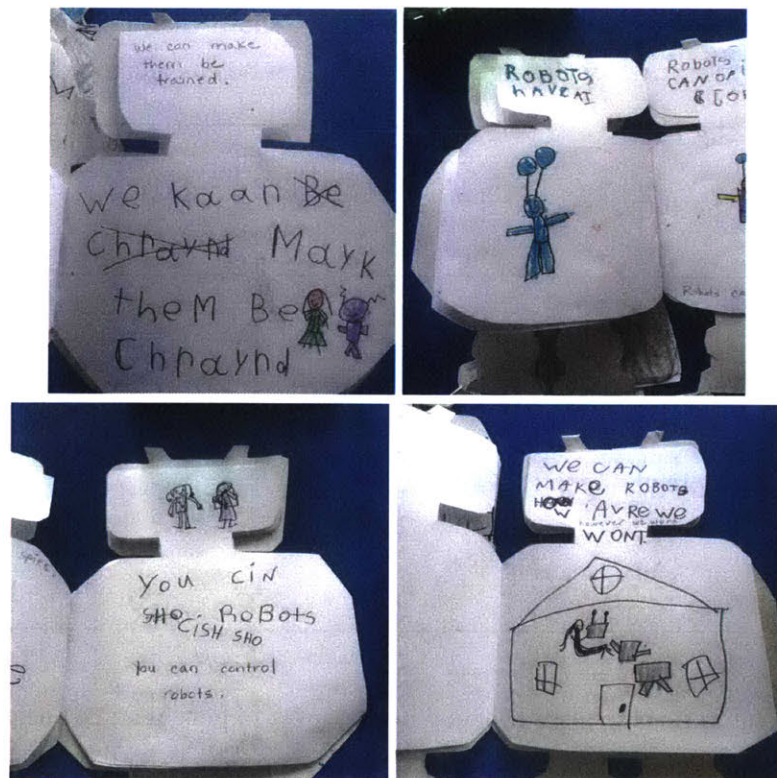 we can make
them be
trained.
We kaan Be
Chraynd Mayk
theM Be
Chraynd
ROBOTS
hAVE AI
ROBOTS
CAN
Robots
spice
YOU CIN
SHO ROBOTS
CISH SHO
You can control
robots.
WE CAN
MAKE ROBOTS
HOW AVRE WE
however we want
WONT.